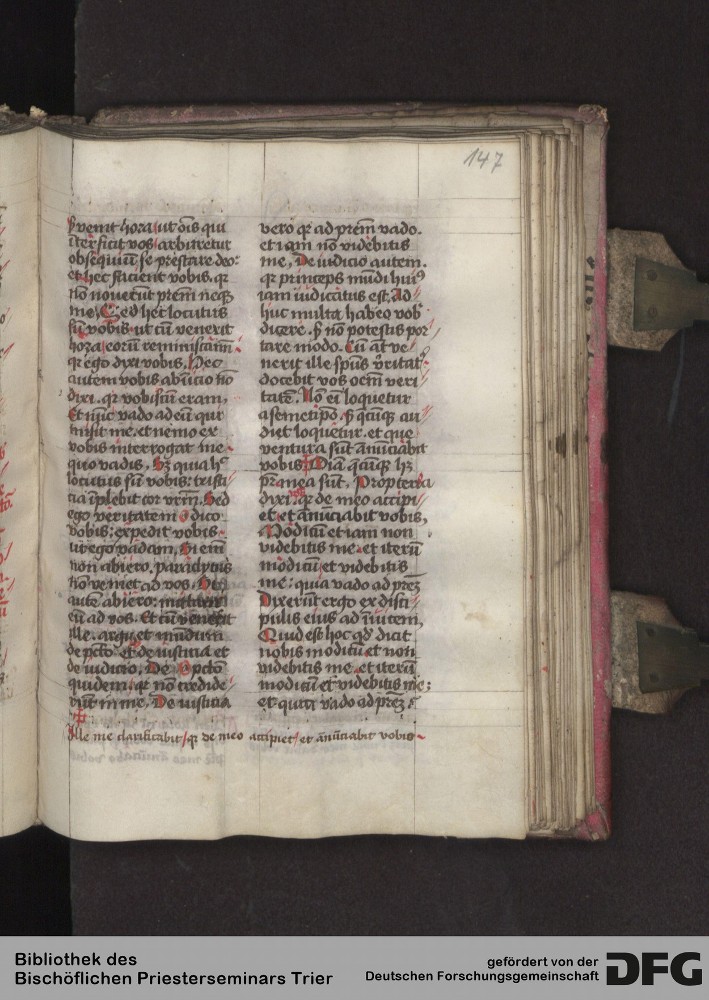 147
s venit hora ut oīs qui
īterficit vos arbitretur
obsequiū se prestare deo:
et hec facient vobis. qr
nō noverūt prēm neqȝ
me. Sed hec locutus
sū vobis. ut cū venerit
hora eorū reminiscam̄
qr ego dixi vobis. Hec
autem vobis ab īnicio nō
dixi. qr vobiscū eram.
Et nūc vado ad eū qui
misit me. et nemo ex
vobis interrogat me.
quo vadis. Sȝ quia h̄
locutus sū vobis: tristi
cia īplebit cor vrm̄. Sed
ego veritatem dico
vobis: expedit vobis
ut ego vadam. Si em̄
non abiero. paraclytus
nō veniet ad vos. Si
autē abiero: mittam
eū ad vos. Et cū venerit
ille. arguet mūdum
de pctō. et de iusticia et
de iudicio. De pctō
quidem. qr non credide
rūt in me. De iusticia
vero qr ad prēm vado.
et iam nō videbitis
me. De iudicio autem.
qr princeps mūdi huiꝰ
iam iudicatus est. Ad
huc multa habeo vob
dicere. s nō potestis por
tare modo. Cū āt ve
nerit ille spūs v̄ritat
docebit vos oēm veri
tatē. Nō em̄ loquetur
a semetipō. s qcūqȝ au
diet loquetur. et que
ventura sūt ānūciabit
vobis. Oīa qcūqȝ hȝ
pr̄ mea sūt. Propterea
dixi. qr de meo accipi
et. et ānūciabit vobis.
Modicū et iam non
videbitis me. et iterū
modicū et videbitis
me: quia vado ad prēȝ
Dixerūt ergo ex disci
pulis eius ad īuicem.
Quid est hoc qd̄ dicit
nobis modicū et non
videbitis me. et iterū
modicū et videbitis me;
et quia vado ad prēȝ
Ille me clarificabit qr de meo accipiet et ānūciabit vobis
Bibliothek des
Bischöflichen Priesterseminars Trier
gefördert von der
Deutschen Forschungsgemeinschaft
DFG